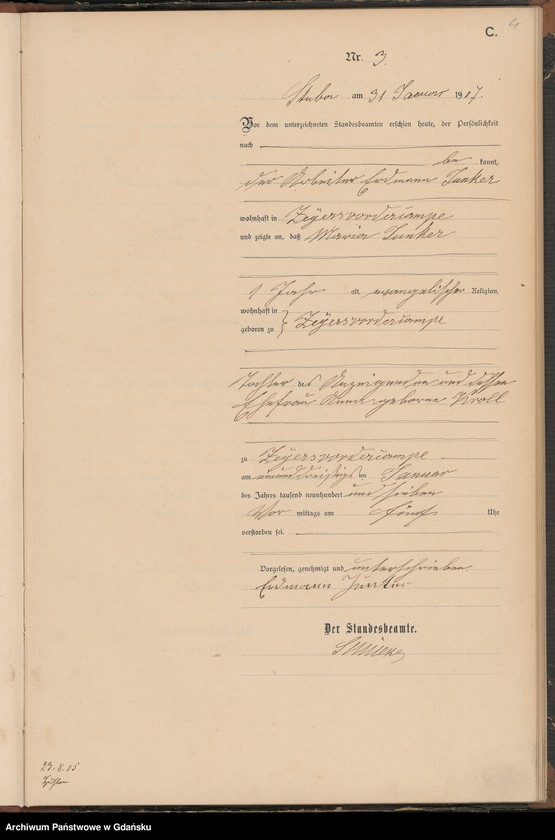 C.
Nr. 3.
Stuba am 31 Januar 1917.
Vor dem unterzeichneten Standesbeamten erschien heute, der Persönlichkeit
nach
be kannt,
der Arbeiter Erdmann Junker
wohnhaft in Zeyersvordercampe
und zeigte an, daß Maria Junker
1 Jahr alt, evangelischer Religion,
wohnhaft in
geboren zu } Zeyersvordercampe
Tochter des Anzeigenden und dessen
Ehefrau Anna geborne Kroll
zu Zeyersvordercampe
am einunddreißigs ten Januar
des Jahres tausend neunhundert und sieben
Vor mittags um fünf Uhr
verstorben sei.
Vorgelesen, genehmigt und unterschrieben
Erdmann Junker
Der Standesbeamte.
23.8.05
Archiwum Państwowe w Gdańsku